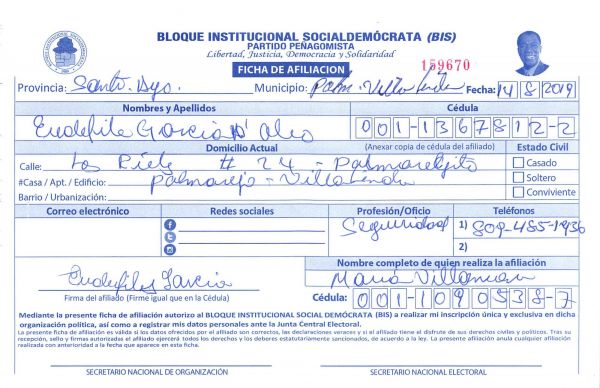 BLOQUE INSTITUCIONAL SOCIALDEMÓCRATA (BIS)
PARTIDO PEÑAGOMISTA
Libertad, Justicia, Democracia y Solidaridad
FICHA DE AFILIACION
159670
Provincia: Santo Dgo. Municipio: Palm. Villa Fecha: 14/8/2019
Nombres y Apellidos Cédula
Garcia D' Oleo 001-1367812-2
Domicilio Actual (Anexar copia de cédula del afiliado) Estado Civil
Calle: Los # 24 - Palmarejito Casado
#Casa / Apt. / Edificio: Palmarejo - Villa Soltero
Barrio / Urbanización: Conviviente
Correo electrónico Redes sociales Profesión/Oficio Teléfonos
Seguridad 1) 809-485-1936
2)
Nombre completo de quien realiza la afiliación
Garcia María
Firma del afiliado (Firme igual que en la Cédula) Cédula: 001-1090538-7
Mediante la presente ficha de afiliación autorizo al BLOQUE INSTITUCIONAL SOCIAL DEMÓCRATA (BIS) a realizar mi inscripción única y exclusiva en dicha
organización política, así como a registrar mis datos personales ante la Junta Central Electoral.
La presente ficha de afiliación es valida si los datos ofrecidos por el afiliado son correctos, las declaraciones veraces y si el afiliado tiene el disfrute de sus derechos civiles y políticos. Tras su
recepción, sello y firmas autorizadas el afiliado ejercerá todos los derechos y los deberes estatutariamente sancionados, de acuerdo a la ley. La presente afiliación anula cualquier afiliación
realizada con anterioridad a la fecha que aparece en esta ficha.
SECRETARIO NACIONAL DE ORGANIZACIÓN SECRETARIO NACIONAL ELECTORAL